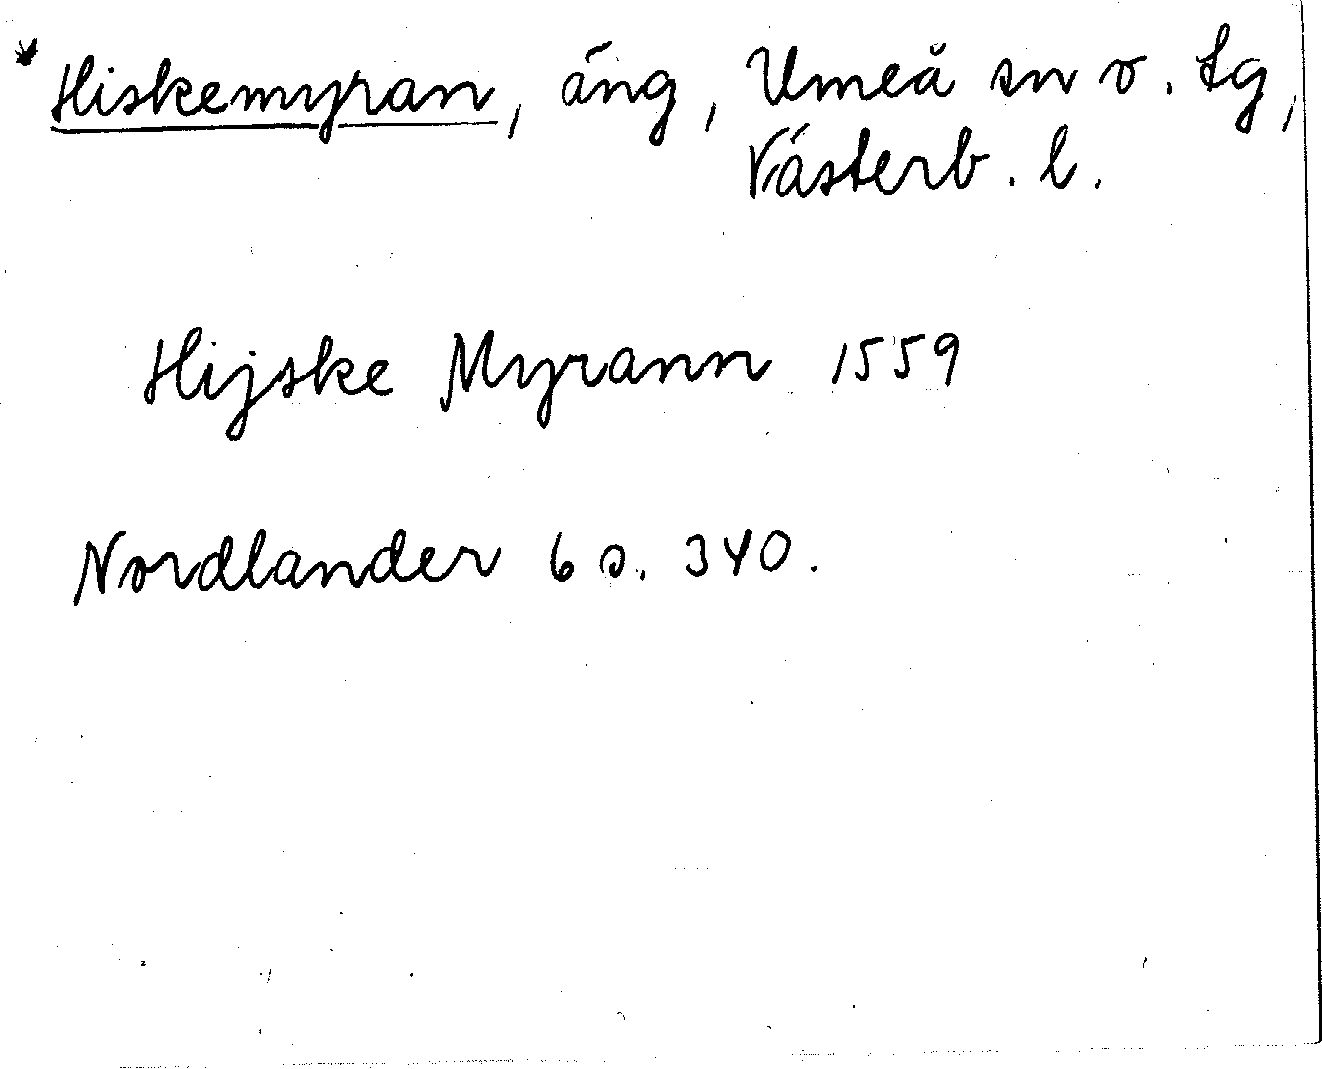 * Hiskemyran, äng, Umeå sn o. tg,
Västerb. l.
Hijske Myrann 1559
Nordlander 6 s. 340.